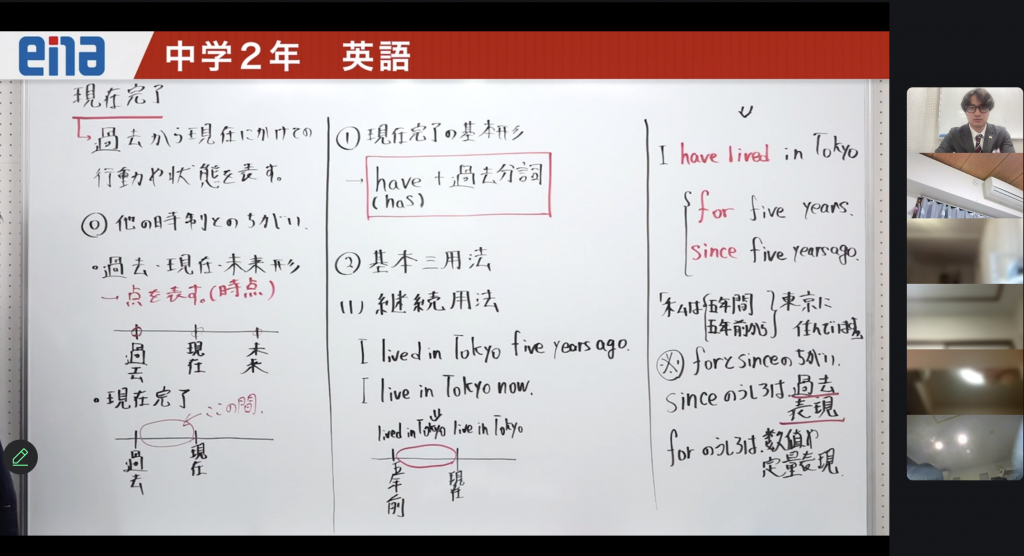 ena
中学2年 英語
現在完了
過去から現在にかけての
行動や状態を表す。
⓪ 他の時制とのちがい.
・過去・現在・未来形
→点を表す。(時点)
過去 現在 未来
・現在完了
ここの間.
過去 現在
① 現在完了の基本形
→ have + 過去分詞
(has)
② 基本三用法
(1) 継続用法
I lived in Tokyo five years ago.
I live in Tokyo now.
lived in Tokyo live in Tokyo
五年前 現在
I have lived in Tokyo
for five years.
since five years ago.
「私は 五年間 東京に
五年前から 住んでいます
※ forとsinceのちがい.
sinceのうしろは、過去
表現
forのうしろは、数値や
定量表現